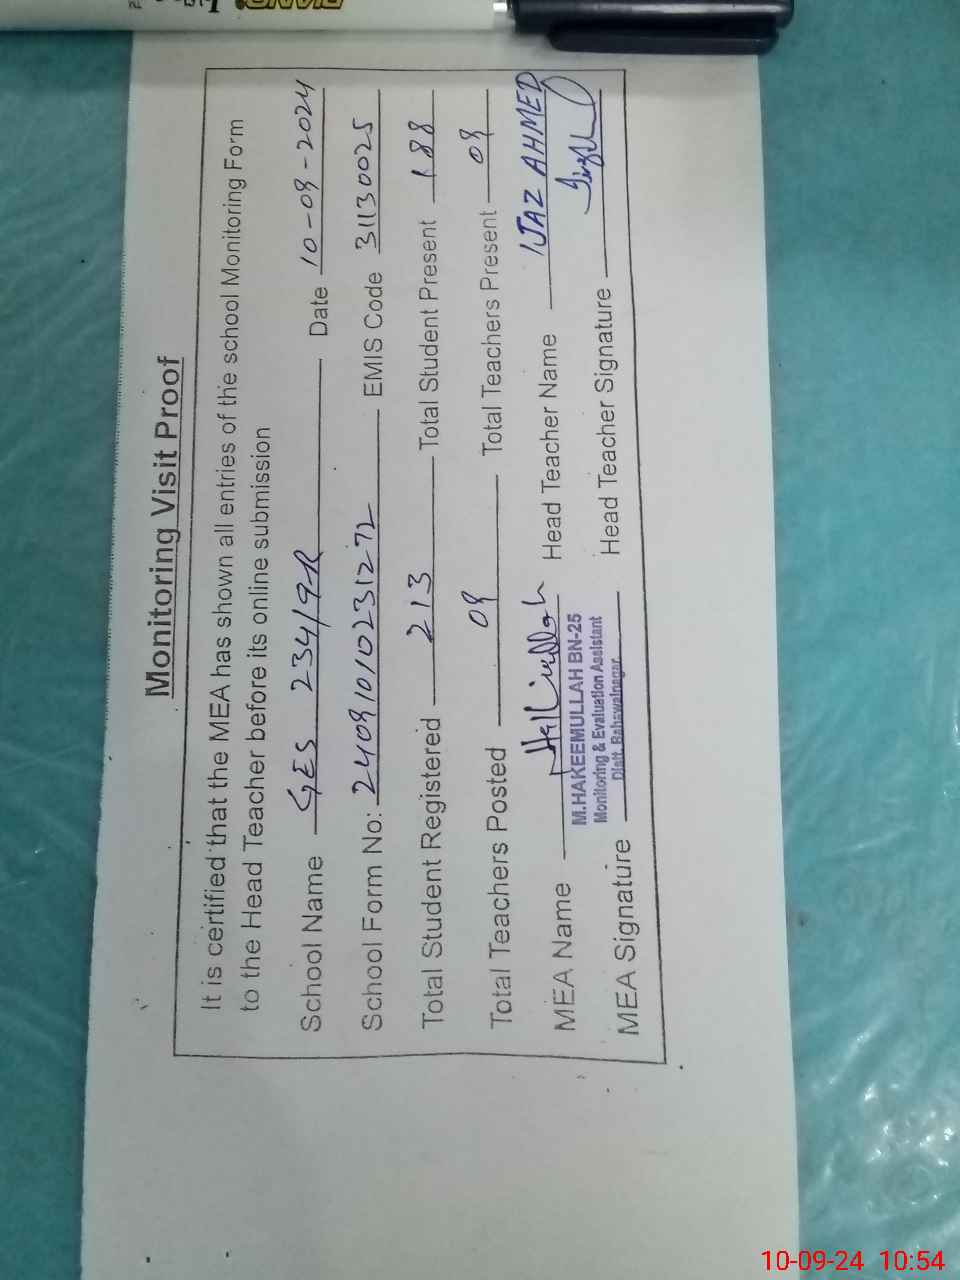 PIANO
Monitoring Visit Proof
It is certified that the MEA has shown all entries of the school Monitoring Form
to the Head Teacher before its online submission
School Name GES 234/9R Date 10-09-2024
School Form No: 24091010231272 EMIS Code 31130025
Total Student Registered 213 Total Student Present 188
Total Teachers Posted 09 Total Teachers Present 09
MEA Name Head Teacher Name IJAZ AHMED
M.HAKEEMULLAH BN-25
Monitoring & Evaluation Assistant
Distt. Bahawalnagar.
MEA Signature Head Teacher Signature
10-09-24 10:54